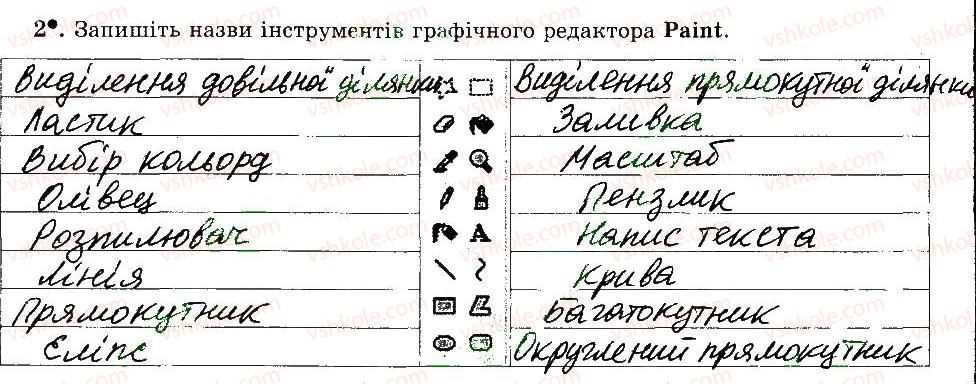 2•. Запишіть назви інструментів графічного редактора Paint.
Виділення довільної ділянки Виділення прямокутної ділянки
Ластик Заливка
Вибір кольорд Масштаб
Олівец Пензлик
Розпилювач A Напис текста
Лінія Крива
Прямокутник Багатокутник
Еліпс Округлений прямокутник